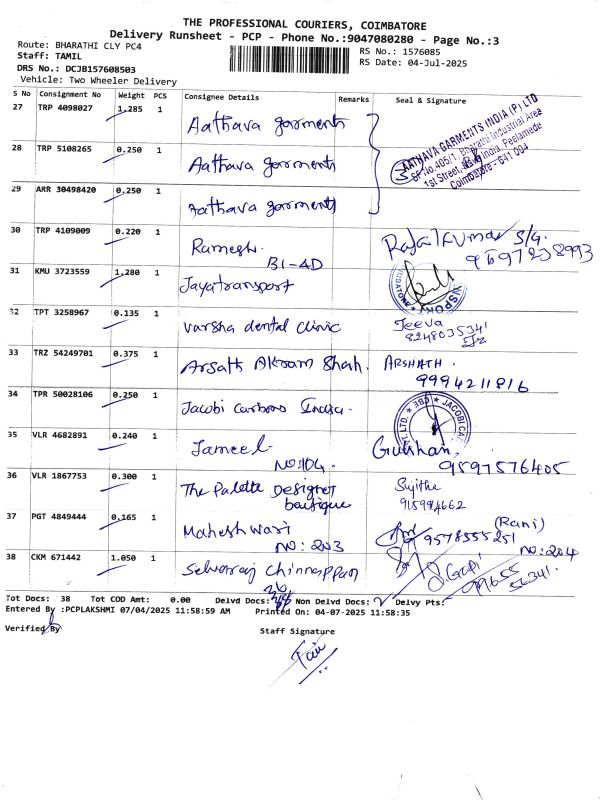 THE PROFESSIONAL COURIERS, COIMBATORE
Delivery Runsheet - PCP - Phone No.:9047080280 - Page No.:3
Route: BHARATHI CLY PC4
RS No.: 1576085
Staff: TAMIL
RS Date: 04-Jul-2025
DRS No.: DCJB157608503
Vehicle: Two Wheeler Delivery
S No Consignment No Weight PCS Consignee Details Remarks Seal & Signature
27 TRP 4098027 1.285 1 Aathava garments
28 TRP 5108265 0.250 1 Aathava garments
AATHAVA GARMENTS INDIA (P) LTD
SF No.405/1, Bharathi Industrial Area
1st Street, India, Peelamedu
Coimbatore - 641 004
29 ARR 30498420 0.250 1 Aathava garments
30 TRP 4109009 0.220 1 Ramesh. B1-4D
Rafailkumar S/G.
31 KMU 3723559 1.280 1 Jayatransport
32 TPT 3258967 0.135 1 Varsha dental clinic
Jeeva
8248035341
33 TRZ 54249701 0.375 1 Arsath Akram Shah. ARSHATH.
9994211816
34 TPR 50028106 0.250 1 Jacobi Carbons India.
35 VLR 4682891 0.240 1 Jameel. Gulshan,
NO:104. 9597576405
36 VLR 1867753 0.300 1 The Palette Designer boutique
Sujithe
37 PGT 4849444 0.165 1 Maheshwari NO: 203
9578555251 (Rani)
NO: 204
38 CKM 671442 1.050 1 Selvaraj Chinnappan
J.Gopi
Tot Docs: 38 Tot COD Amt: 0.00 Delvd Docs: Non Delvd Docs: 2 Delvy Pts:
Entered By :PCPLAKSHMI 07/04/2025 11:58:59 AM Printed On: 04-07-2025 11:58:35
Verified By
Staff Signature